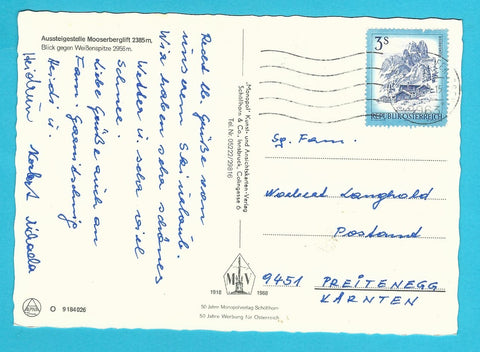 Aussteigestelle Mooserberglift 2385 m,
Blick gegen Weißenspitze 2956 m.
Recht lb. Grüße von
unserem Skiurlaub.
Wir haben sehr schönes
Wetter u. sehr viel
Schnee.
Liebe Grüße auch an
Fam.
Heidi u.
Heidrun Norbert Michaela
"Monopol" Kunst- und Ansichtskarten-Verlag
Schöllhorn & Co., Innsbruck, Colingasse 6
Tel. Nr. 05222/29816
3S
REPUBLIK ÖSTERREICH
Sg. Fam.
Norbert Langhold
Postamt
9451 PREITENEGG
KÄRNTEN
1918 MV 1968
50 Jahre Monopolverlag Schöllhorn
50 Jahre Werbung für Österreich
O 9184026